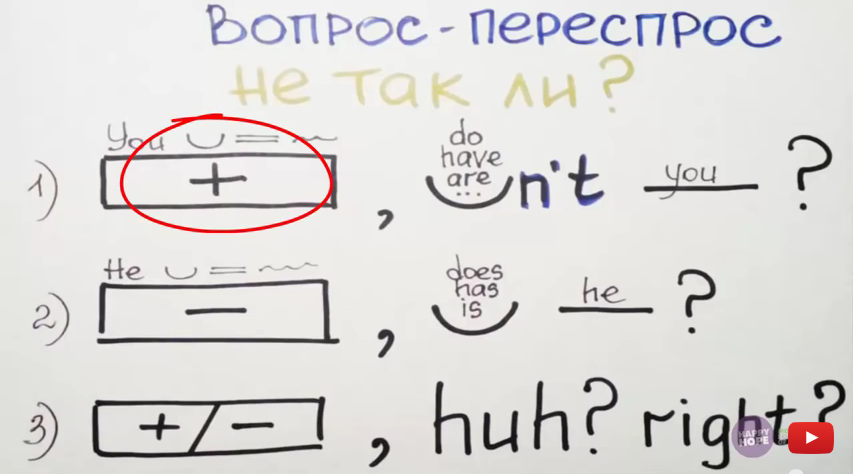 Вопрос-переспрос
Не так ли?
You
1) + , do have are ... n't you ?
He
2) — , does has is he ?
3) + / — , huh? right?
HAPPY HOPE